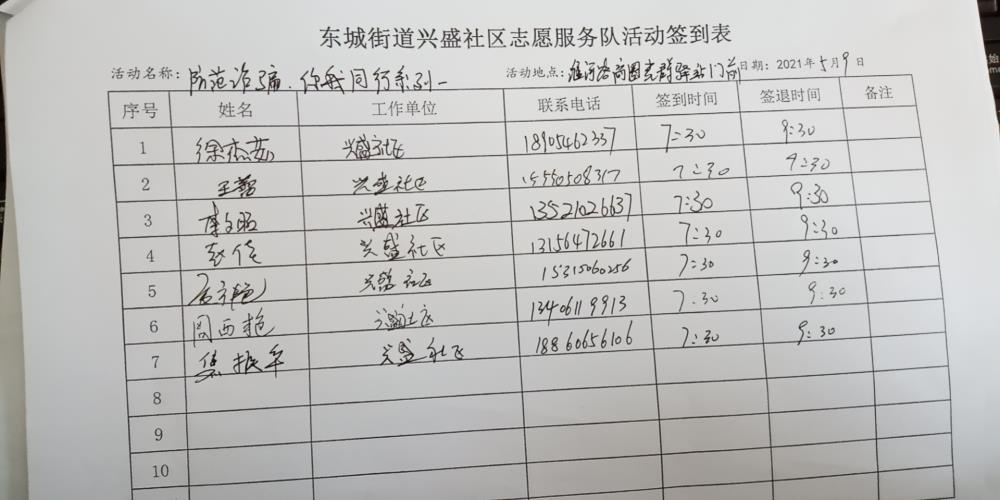 东城街道兴盛社区志愿服务队活动签到表
活动名称：防范诈骗、你我同行系列一 活动地点：淮河路商圈党群驿站门前 日期：2021年5月9日
序号 姓名 工作单位 联系电话 签到时间 签退时间 备注
1 徐杰茹 兴盛社区 18905462337 7:30 9:30
2 王 兴盛社区 15550508317 7:30 9:30
3 李文昭 兴盛社区 13521026637 7:30 9:30
4 赵佳 兴盛社区 13156472661 7:30 9:30
5 兴盛社区 15315060256 7:30 9:30
6 周西艳 兴盛社区 13406119913 7:30 9:30
7 焦振华 兴盛社区 18860656106 7:30 9:30
8
9
10